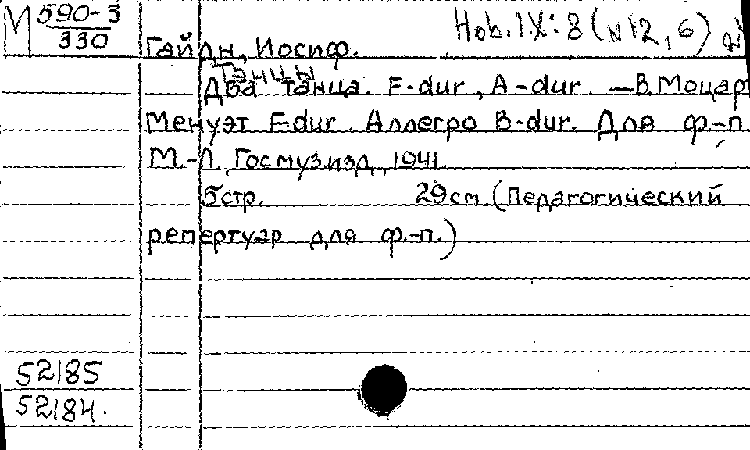 М 590-3
330
Hob. IX: 8 (№ 12, 6)
Гайдн, Иосиф.
Танцы
Два танца. F-dur, A-dur. — В. Моцар
Менуэт F-dur. Аллегро B-dur. Для ф.-п.
М.-Л., Госмузизд, 1941
5 стр. 29 см. (Педагогический
репертуар для ф.-п.)
52185
52184.